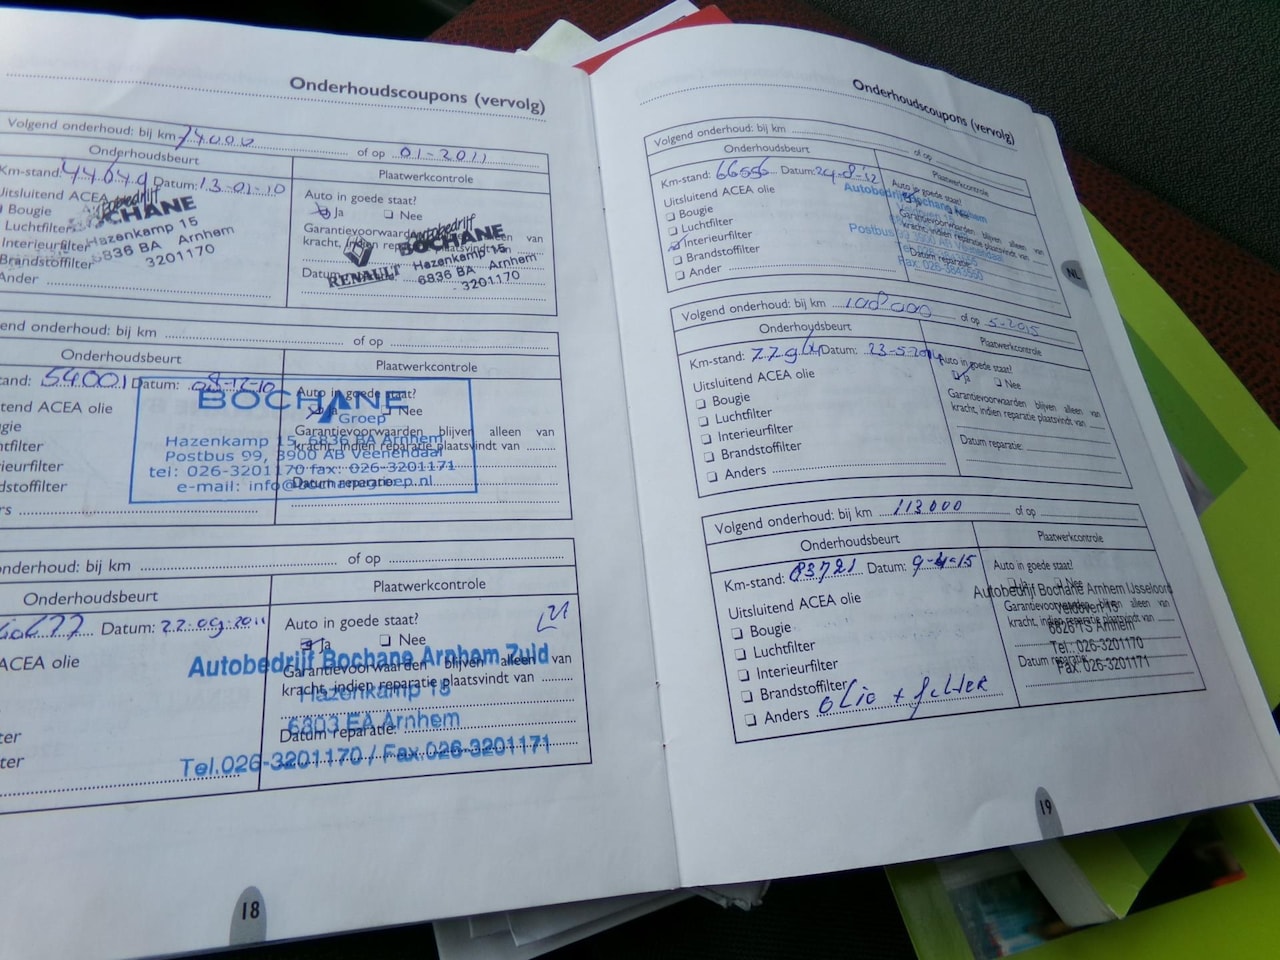 Onderhoudscoupons (vervolg)
Volgend onderhoud: bij km 74000 of op 01-2011
Onderhoudsbeurt
Plaatwerkcontrole
Km-stand: 44649 Datum: 13-01-10
Uitsluitend ACEA
Bougie
Luchtfilter
Interieurfilter
Brandstoffilter
Ander
Autobedrijf
BOCHANE
Hazenkamp 15
6836 BA Arnhem
3201170
Auto in goede staat?
Ja Nee
Garantievoorwaarden blijven alleen van
kracht, indien reparatie plaatsvindt van
Datum
RENAULT
Autobedrijf
BOCHANE
Hazenkamp 15
6836 BA Arnhem
3201170
gend onderhoud: bij km of op
Onderhoudsbeurt
Plaatwerkcontrole
tand: 54001 Datum: 08-12-10
tend ACEA olie
gie
htfilter
rieurfilter
dstoffilter
rs
Auto in goede staat?
Ja Nee
Garantievoorwaarden blijven alleen van
kracht, indien reparatie plaatsvindt van
Datum reparatie:
BOCHANE
Groep
Hazenkamp 15, 6836 BA Arnhem
Postbus 99, 3900 AB Veenendaal
tel: 026-3201170 fax: 026-3201171
e-mail: info@bochanegroep.nl
onderhoud: bij km of op
Onderhoudsbeurt
Plaatwerkcontrole
Datum: 22-09-2011
ACEA olie
ter
ter
Auto in goede staat?
Ja Nee
Garantievoorwaarden blijven alleen van
kracht, indien reparatie plaatsvindt van
Datum reparatie:
Autobedrijf Bochane Arnhem Zuid
Hazenkamp 15
6803 EA Arnhem
Tel.026-3201170 / Fax.026-3201171
18
Onderhoudscoupons (vervolg)
Volgend onderhoud: bij km of op
Onderhoudsbeurt
Plaatwerkcontrole
Km-stand: 66556 Datum: 24-8-12
Uitsluitend ACEA olie
Bougie
Luchtfilter
Interieurfilter
Brandstoffilter
Ander
Auto in goede staat?
Garantievoorwaarden blijven alleen van
kracht, indien reparatie plaatsvindt van
Datum reparatie
Autobedrijf Bochane Arnhem
Postbus
Veenendaal
NL
Volgend onderhoud: bij km 108000 of op 5-2015
Onderhoudsbeurt
Plaatwerkcontrole
Km-stand: Datum: 23-5-2014
Uitsluitend ACEA olie
Bougie
Luchtfilter
Interieurfilter
Brandstoffilter
Anders
Auto in goede staat?
Ja Nee
Garantievoorwaarden blijven alleen van
kracht, indien reparatie plaatsvindt van
Datum reparatie:
Volgend onderhoud: bij km 113000 of op
Onderhoudsbeurt
Plaatwerkcontrole
Km-stand: 83721 Datum: 9-4-15
Uitsluitend ACEA olie
Bougie
Luchtfilter
Interieurfilter
Brandstoffilter
Anders olie + filter
Auto in goede staat?
Ja Nee
Garantievoorwaarden blijven alleen van
kracht, indien reparatie plaatsvindt van
Datum reparatie:
Autobedrijf Bochane Arnhem IJsseloord
Veldoven 15
6826 TS Arnhem
Tel.: 026-3201170
Fax: 026-3201171
19